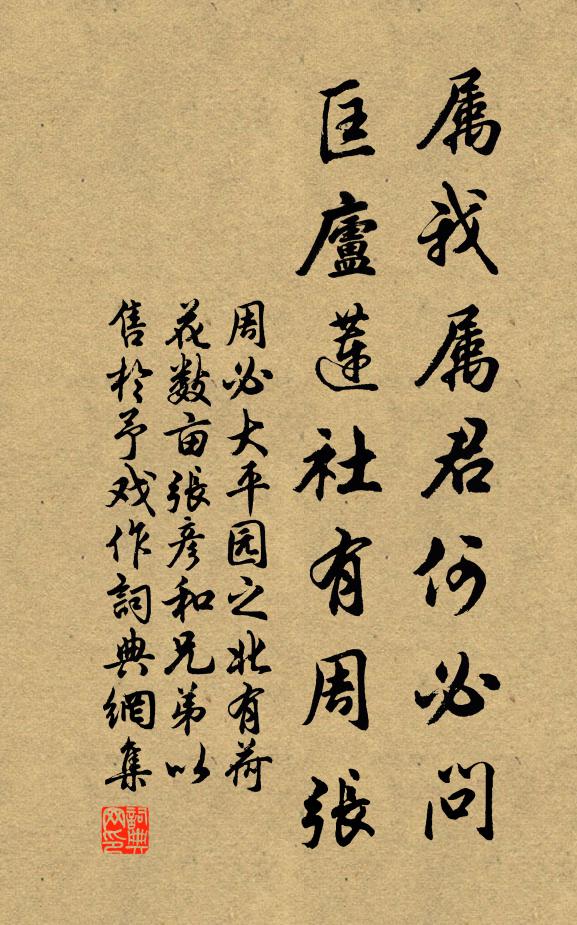 属我属君何必问
匡廬蓮社有周張
周必大平园之北有荷
花数亩張彦和兄弟以
售於予戏作詞典網集
詞典网印